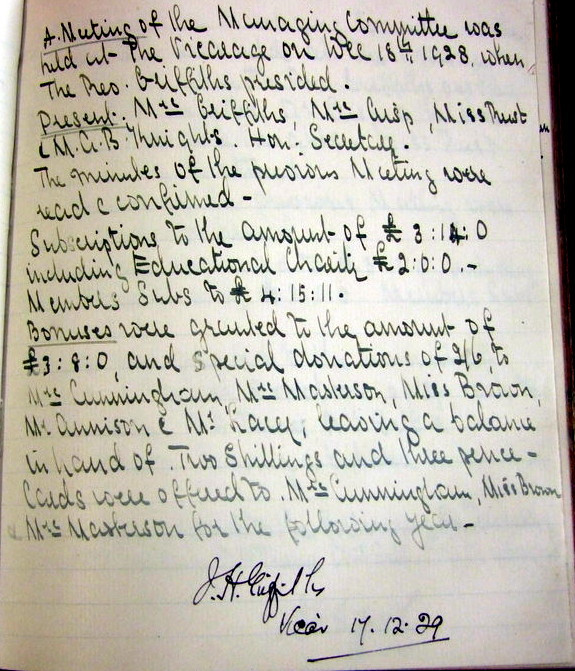 A Meeting of the Managing Committee was
held at The Vicarage on Dec 18th, 1928, when
The Rev. Griffiths presided.
Present. Mrs Griffiths, Mrs Cusp, Miss Rust
& M.G.B. Knights. Hon. Secretary
The minutes of the previous Meeting were
read & confirmed -
Subscriptions to the amount of £3:14:0
including Educational Charity £2:0:0 -
Members Subs to £4:15:11.
Bonuses were granted to the amount of
£3:8:0, and Special donations of 2/6, to
Mrs Cunningham, Mrs Masterson, Miss Brown,
Mr Annison & Mr Lacey, leaving a balance
in hand of Two Shillings and three pence -
Cards were offered to Mrs Cunningham, Miss Brown
& Mrs Masterson for the following year -
J.H. Griffiths
Vicar 17.12.29